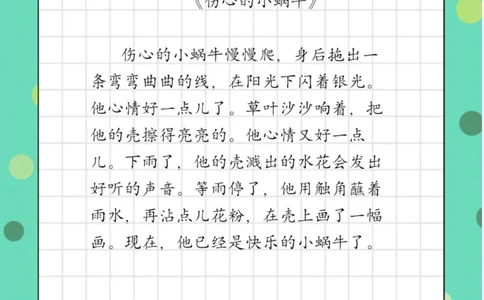 《伤心的小蜗牛》
伤心的小蜗牛慢慢爬，身后拖出一
条弯弯曲曲的线，在阳光下闪着银光。
他心情好一点儿了。草叶沙沙响着，把
他的壳擦得亮亮的。他心情又好一点
儿。下雨了，他的壳溅出的水花会发出
好听的声音。等雨停了，他用触角蘸着
雨水，再沾点儿花粉，在壳上画了一幅
画。现在，他已经是快乐的小蜗牛了。